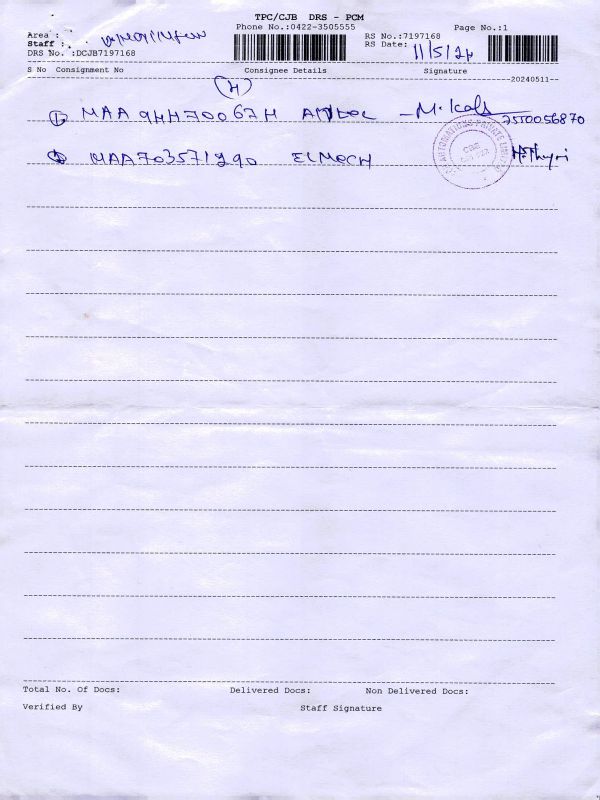 TPC/CJB DRS - PCM
Phone No.:0422-3505555
Page No.:1
Area :
RS No.:7197168
Staff :
RS Date: 11/5/24
DRS No. :DCJB7197168
S No Consignment No Consignee Details Signature
20240511
(4)
① MAA 944700674 M. Kala 7550056870
② MAA703571290 ELMECH
Total No. Of Docs: Delivered Docs: Non Delivered Docs:
Verified By Staff Signature